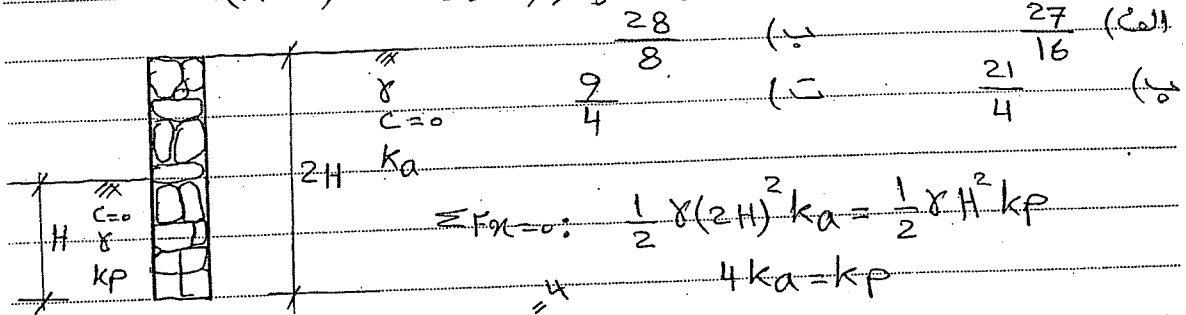 الف) 27/16    ب) 28/8
پ) 21/4    ت) 9/4
γ
C=0
Ka
2H
C=0
H γ
Kp
ΣFx=0: 1/2 γ(2H)² ka = 1/2 γH² kp
4ka=kp
4